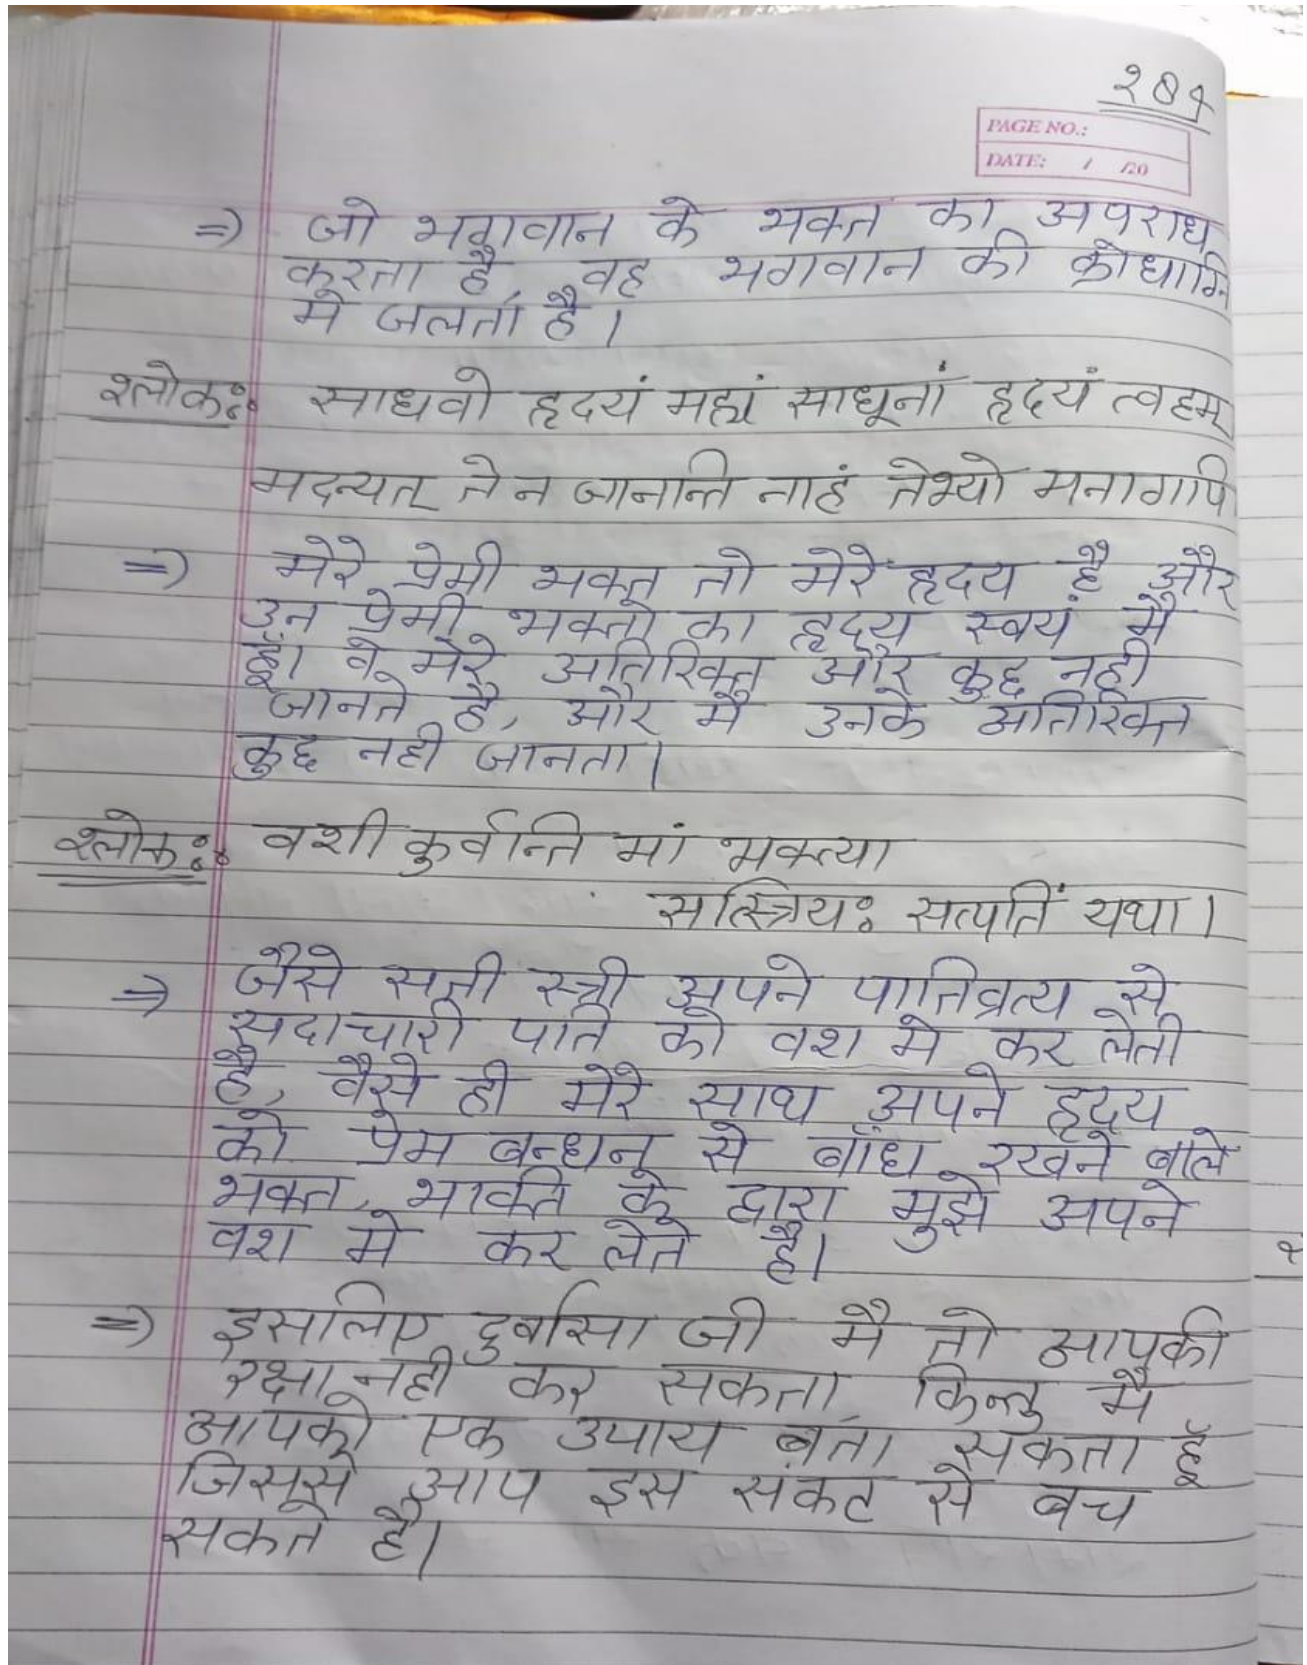 PAGE NO.:
DATE: / /20
=) जो भगवान के भक्त का अपराध
करता है, वह भगवान की क्रोधाग्नि
में जलता है।
श्लोकः साधवो हृदयं मह्यं साधूनां हृदयं त्वहम्
मदन्यत् ते न जानान्ति नाहं तेभ्यो मनागपि
=) मेरे प्रेमी भक्त तो मेरे हृदय है और
उन प्रेमी भक्तो का हृदय स्वयं मै
हूँ। वे मेरे अतिरिक्त और कुछ नही
जानते है, और मै उनके अतिरिक्त
कुछ नही जानता।
श्लोकः वशी कुर्वान्ति मां भक्त्या
सत्स्त्रियः सत्पतिं यथा।
=) जैसे सती स्त्री अपने पातिव्रत्य से
सदाचारी पति को वश मे कर लेती
है, वैसे ही मेरे साथ अपने हृदय
को प्रेम बन्धन से बाँध रखने बाले
भक्त, भक्ति के द्वारा मुझे अपने
वश मे कर लेते है।
=) इसलिए दुर्वासा जी मै तो आपकी
रक्षा नही कर सकता किन्तु मै
आपको एक उपाय बता सकता हूँ
जिससे आप इस संकट से बच
सकते है।